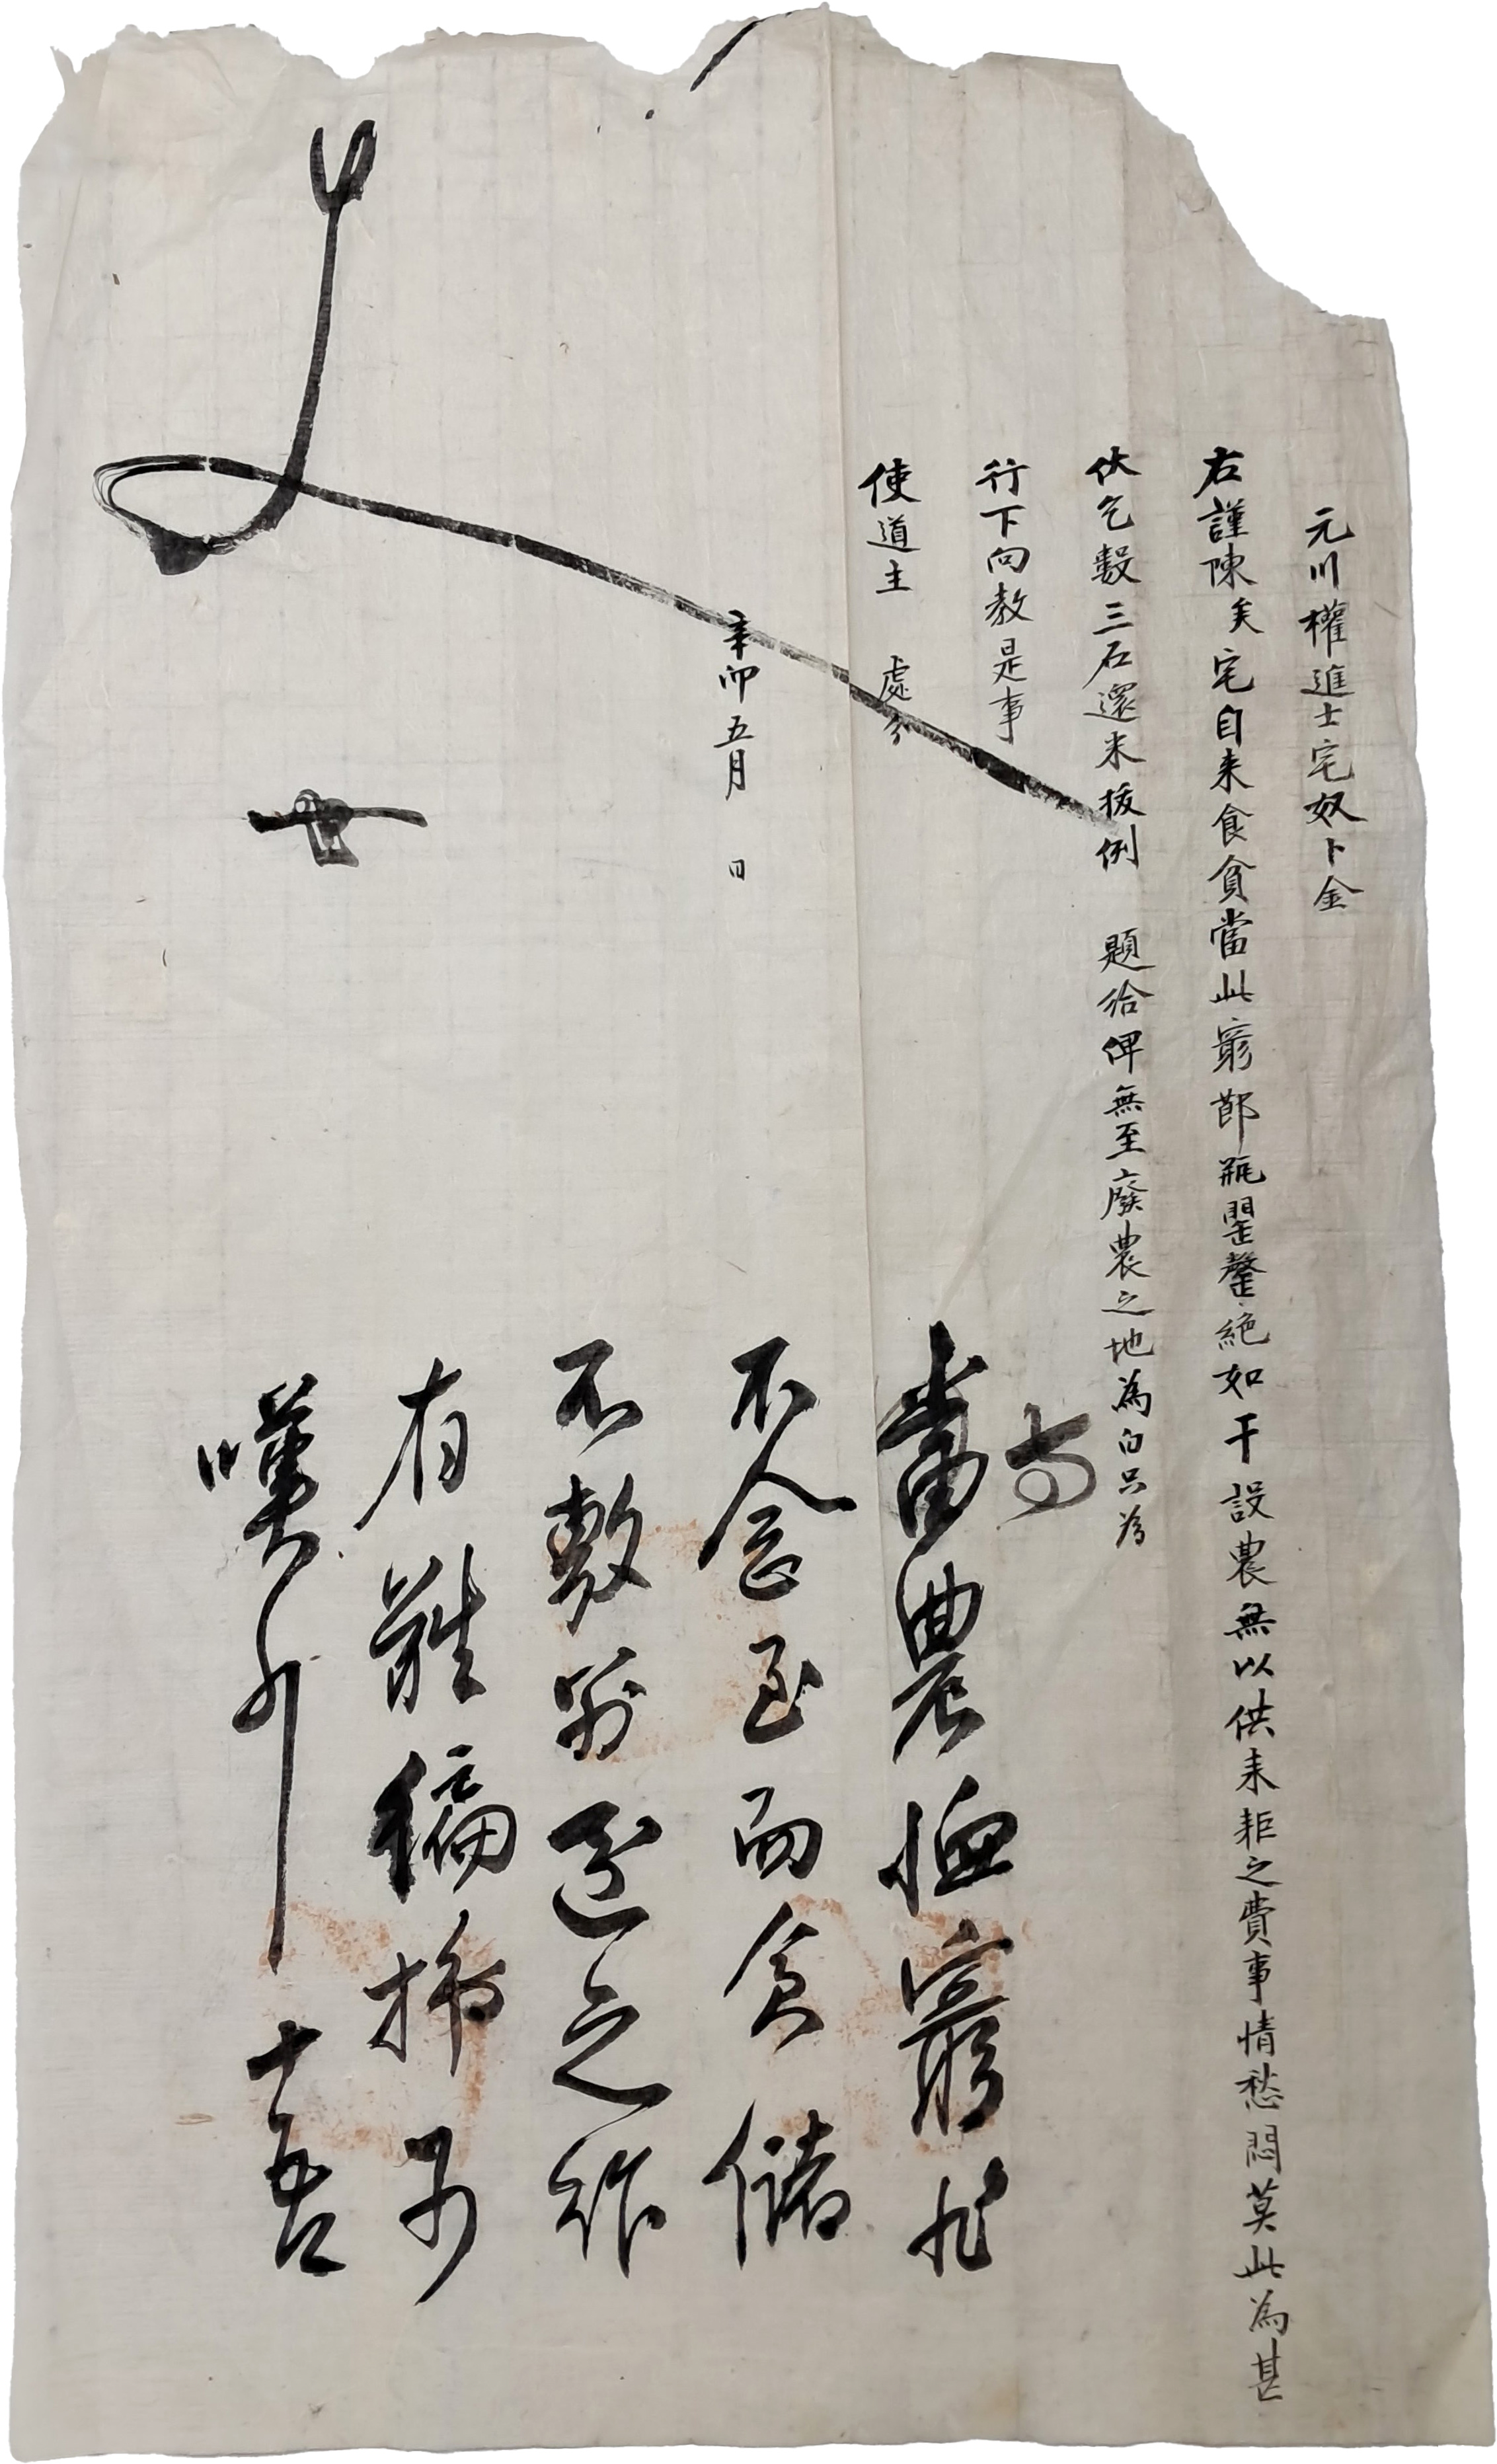 元川權進士宅奴卜金
右謹陳矣宅自来食貧當此窮節瓶罌罄絶如干設農無以供耒耟之費事情愁悶莫此為甚
伏乞數三石還米拔例 題給俾無至廢農之地為白只為
行下向教是事
使道主 處分
辛卯五月 日
當農恤窮非
不念至而倉儲
不敷別還之作
有難偏施可
嘆
十